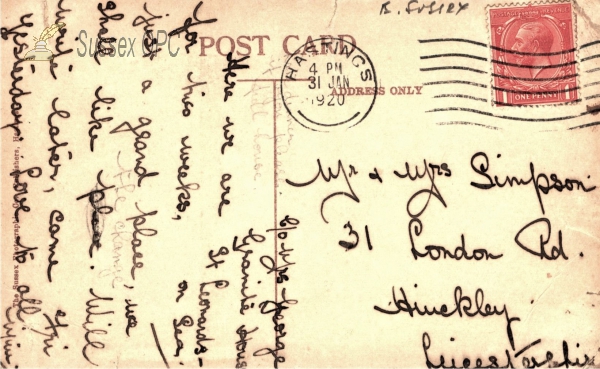 E. SUSSEX
Sussex OPC
POST CARD
HASTINGS
4 PM
31 JAN
1920
ADDRESS ONLY
POSTAGE
REVENUE
ONE PENNY
Mr & Mrs Simpson
31 London Rd.
Hinckley
Leicestershire
c/o Mrs George
Granite House
St Leonards-
on Sea,
Here we are
for two weeks,
just a grand place, we
shall like the change
place. Will
write later, came Fri
yesterday. Love to all